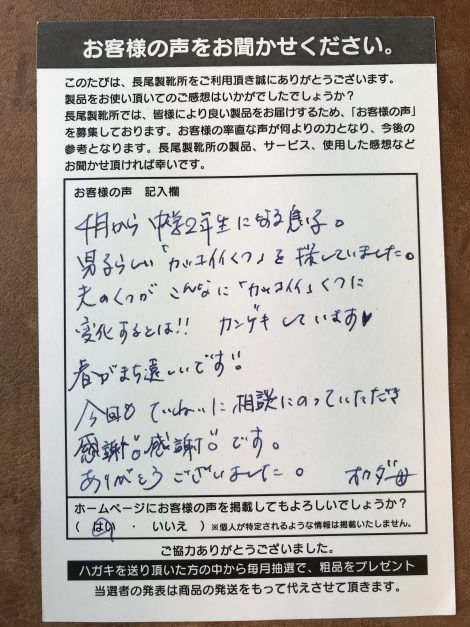 お客様の声をお聞かせください。
このたびは、長尾製靴所をご利用頂き誠にありがとうございます。
製品をお使い頂いてのご感想はいかがでしたでしょうか？
長尾製靴所では、皆様により良い製品をお届けするため、「お客様の声」
を募集しております。お客様の率直な声が何よりの力となり、今後の
参考となります。長尾製靴所の製品、サービス、使用した感想など
お聞かせ頂ければ幸いです。
お客様の声 記入欄
4月から 中学2年生になる息子。
男子らしい「カッコイイくつ」を探していました。
夫のくつが こんなに「カッコイイ」くつに
変化するとは!! カンゲキしています♥
春がまち遠しいです!!
今回も ていねいに相談にのっていただき
感謝!! 感謝!! です。
ありがとうございました。 オカダ母
ホームページにお客様の声を掲載してもよろしいでしょうか？
( はい ・ いいえ ) ※個人が特定されるような情報は掲載いたしません。
ご協力ありがとうございました。
ハガキを送り頂いた方の中から毎月抽選で、粗品をプレゼント
当選者の発表は商品の発送をもって代えさせて頂きます。